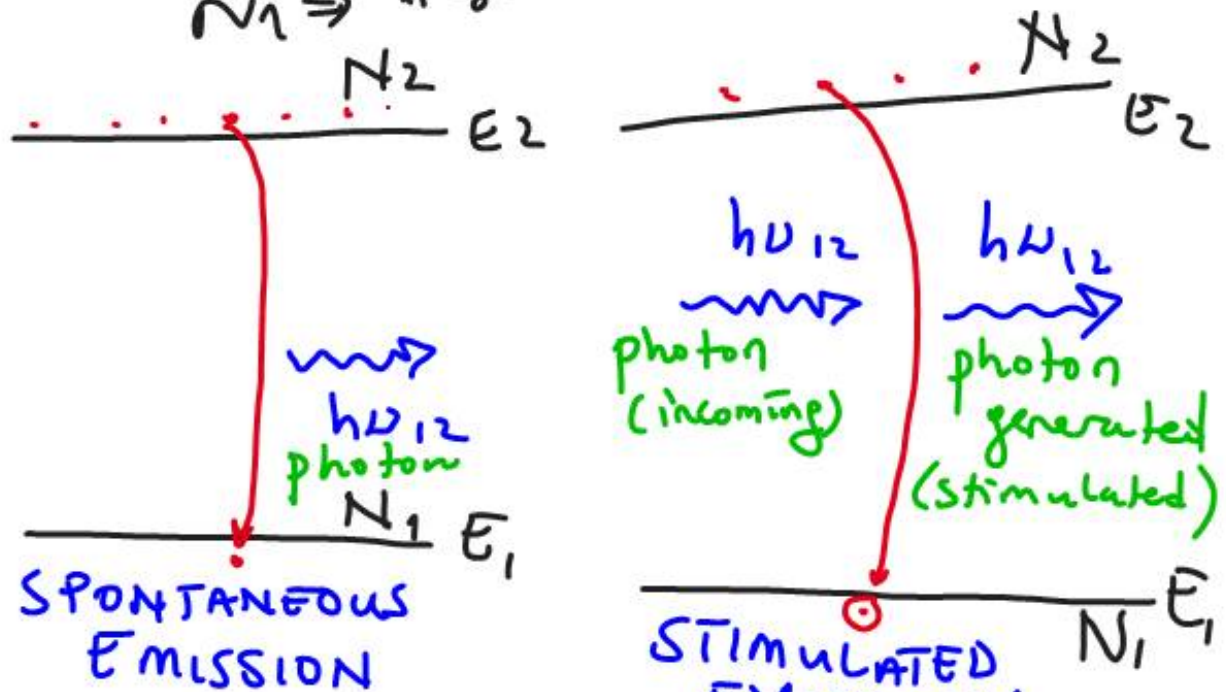 N1 ⇒
N2
E2
hν12
photon
N1
E1
SPONTANEOUS
EMISSION
N2
E2
hν12
photon
(incoming)
hν12
photon
generated
(stimulated)
E1
N1
STIMULATED